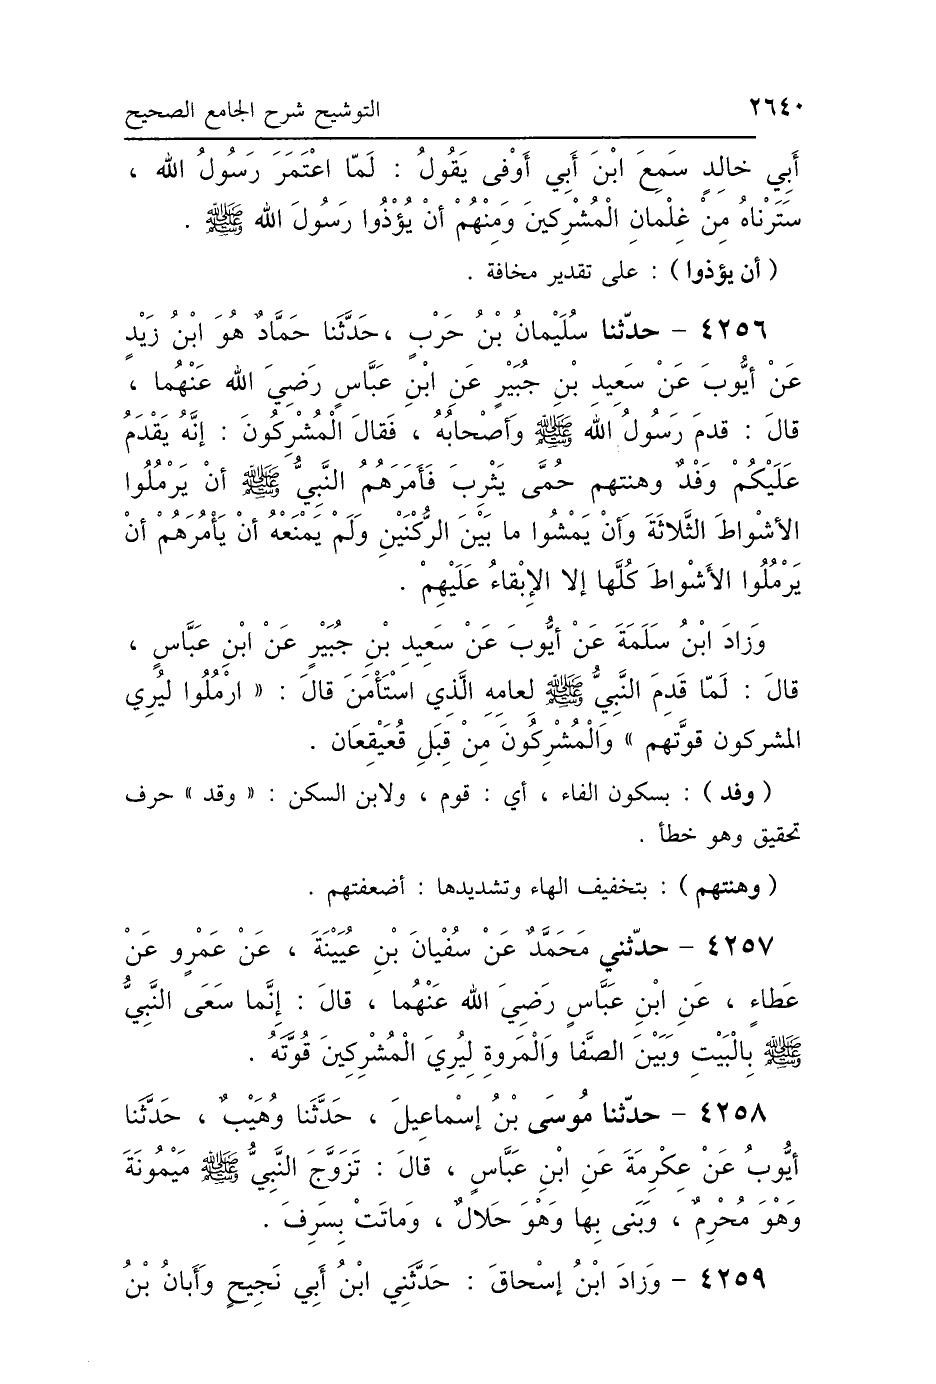 ٢٦٤٠ التوشيح شرح الجامع الصحيح
أَبِي خالِدٍ سَمِعَ ابْنَ أَبِي أَوْفى يَقُولُ : لَمّا اعْتَمَرَ رَسُولُ الله ،
سَتَرْناهُ مِنْ غِلْمانِ الْمُشْرِكِينَ وَمِنْهُمْ أنْ يُؤْذُوا رَسُولَ الله ﷺ .
( أن يؤذوا ) : على تقدير مخافة .
٤٢٥٦ - حدّثنا سُلَيْمانُ بْنُ حَرْبٍ ، حَدَّثَنا حَمَّادٌ هُوَ ابْنُ زَيْدٍ
عَنْ أيُّوبَ عَنْ سَعِيدِ بْنِ جُبَيْرٍ عَنِ ابْنِ عَبَّاسٍ رَضِيَ الله عَنْهُما ،
قالَ : قدمَ رَسُولُ الله ﷺ وأصْحابُهُ ، فَقالَ الْمُشْرِكُونَ : إنَّهُ يَقْدَمُ
عَلَيْكُمْ وَفْدٌ وهنتهم حُمَّى يَثْرِبَ فَأَمَرَهُمُ النَّبِيُّ ﷺ أنْ يَرْمُلُوا
الأشْواطَ الثَّلاثَةَ وَأنْ يَمْشُوا ما بَيْنَ الرُّكْنَيْنِ وَلَمْ يَمْنَعْهُ أنْ يَأْمُرَهُمْ أنْ
يَرْمُلُوا الأَشْواطَ كُلَّها إلا الإبْقاءُ عَلَيْهِمْ .
وَزادَ ابْنُ سَلَمَةَ عَنْ أيُّوبَ عَنْ سَعِيدِ بْنِ جُبَيْرٍ عَنْ ابْنِ عَبَّاسٍ ،
قالَ : لَمّا قَدِمَ النَّبِيُّ ﷺ لِعامِهِ الَّذِي اسْتَأْمَنَ قالَ : « ارْمُلُوا لِيُرِي
المشركون قوَّتهم » وَالْمُشْرِكُونَ مِنْ قِبَلِ قُعَيْقِعَان .
( وفد ) : بسكون الفاء ، أي : قوم ، ولابن السكن : « وقد » حرف
تحقيق وهو خطأ .
( وهنتهم ) : بتخفيف الهاء وتشديدها : أضعفتهم .
٤٢٥٧ - حدّثني مَحَمَّدٌ عَنْ سُفْيانَ بْنِ عُيَيْنَةَ ، عَنْ عَمْرٍو عَنْ
عَطاءٍ ، عَنِ ابْنِ عَبَّاسٍ رَضِيَ الله عَنْهُما ، قالَ : إنَّما سَعَى النَّبِيُّ
ﷺ بِالْبَيْتِ وَبَيْنَ الصَّفا وَالْمَروةِ لِيُرِيَ الْمُشْرِكِينَ قُوَّتَهُ .
٤٢٥٨ - حدّثنا مُوسَى بْنُ إسْماعِيلَ ، حَدَّثَنَا وُهَيْبٌ ، حَدَّثَنا
أيُّوبُ عَنْ عِكْرِمَةَ عَنِ ابْنِ عَبَّاسٍ ، قالَ : تَزَوَّجَ النَّبِيُّ ﷺ مَيْمُونَةَ
وَهْوَ مُحْرِمٌ ، وَبَنى بِها وَهْوَ حَلالٌ ، وَماتَتْ بِسَرِفَ .
٤٢٥٩ - وَزادَ ابْنُ إسْحاقَ : حَدَّثَنِي ابْنُ أَبِي نَجِيحٍ وَأَبانُ بْنُ